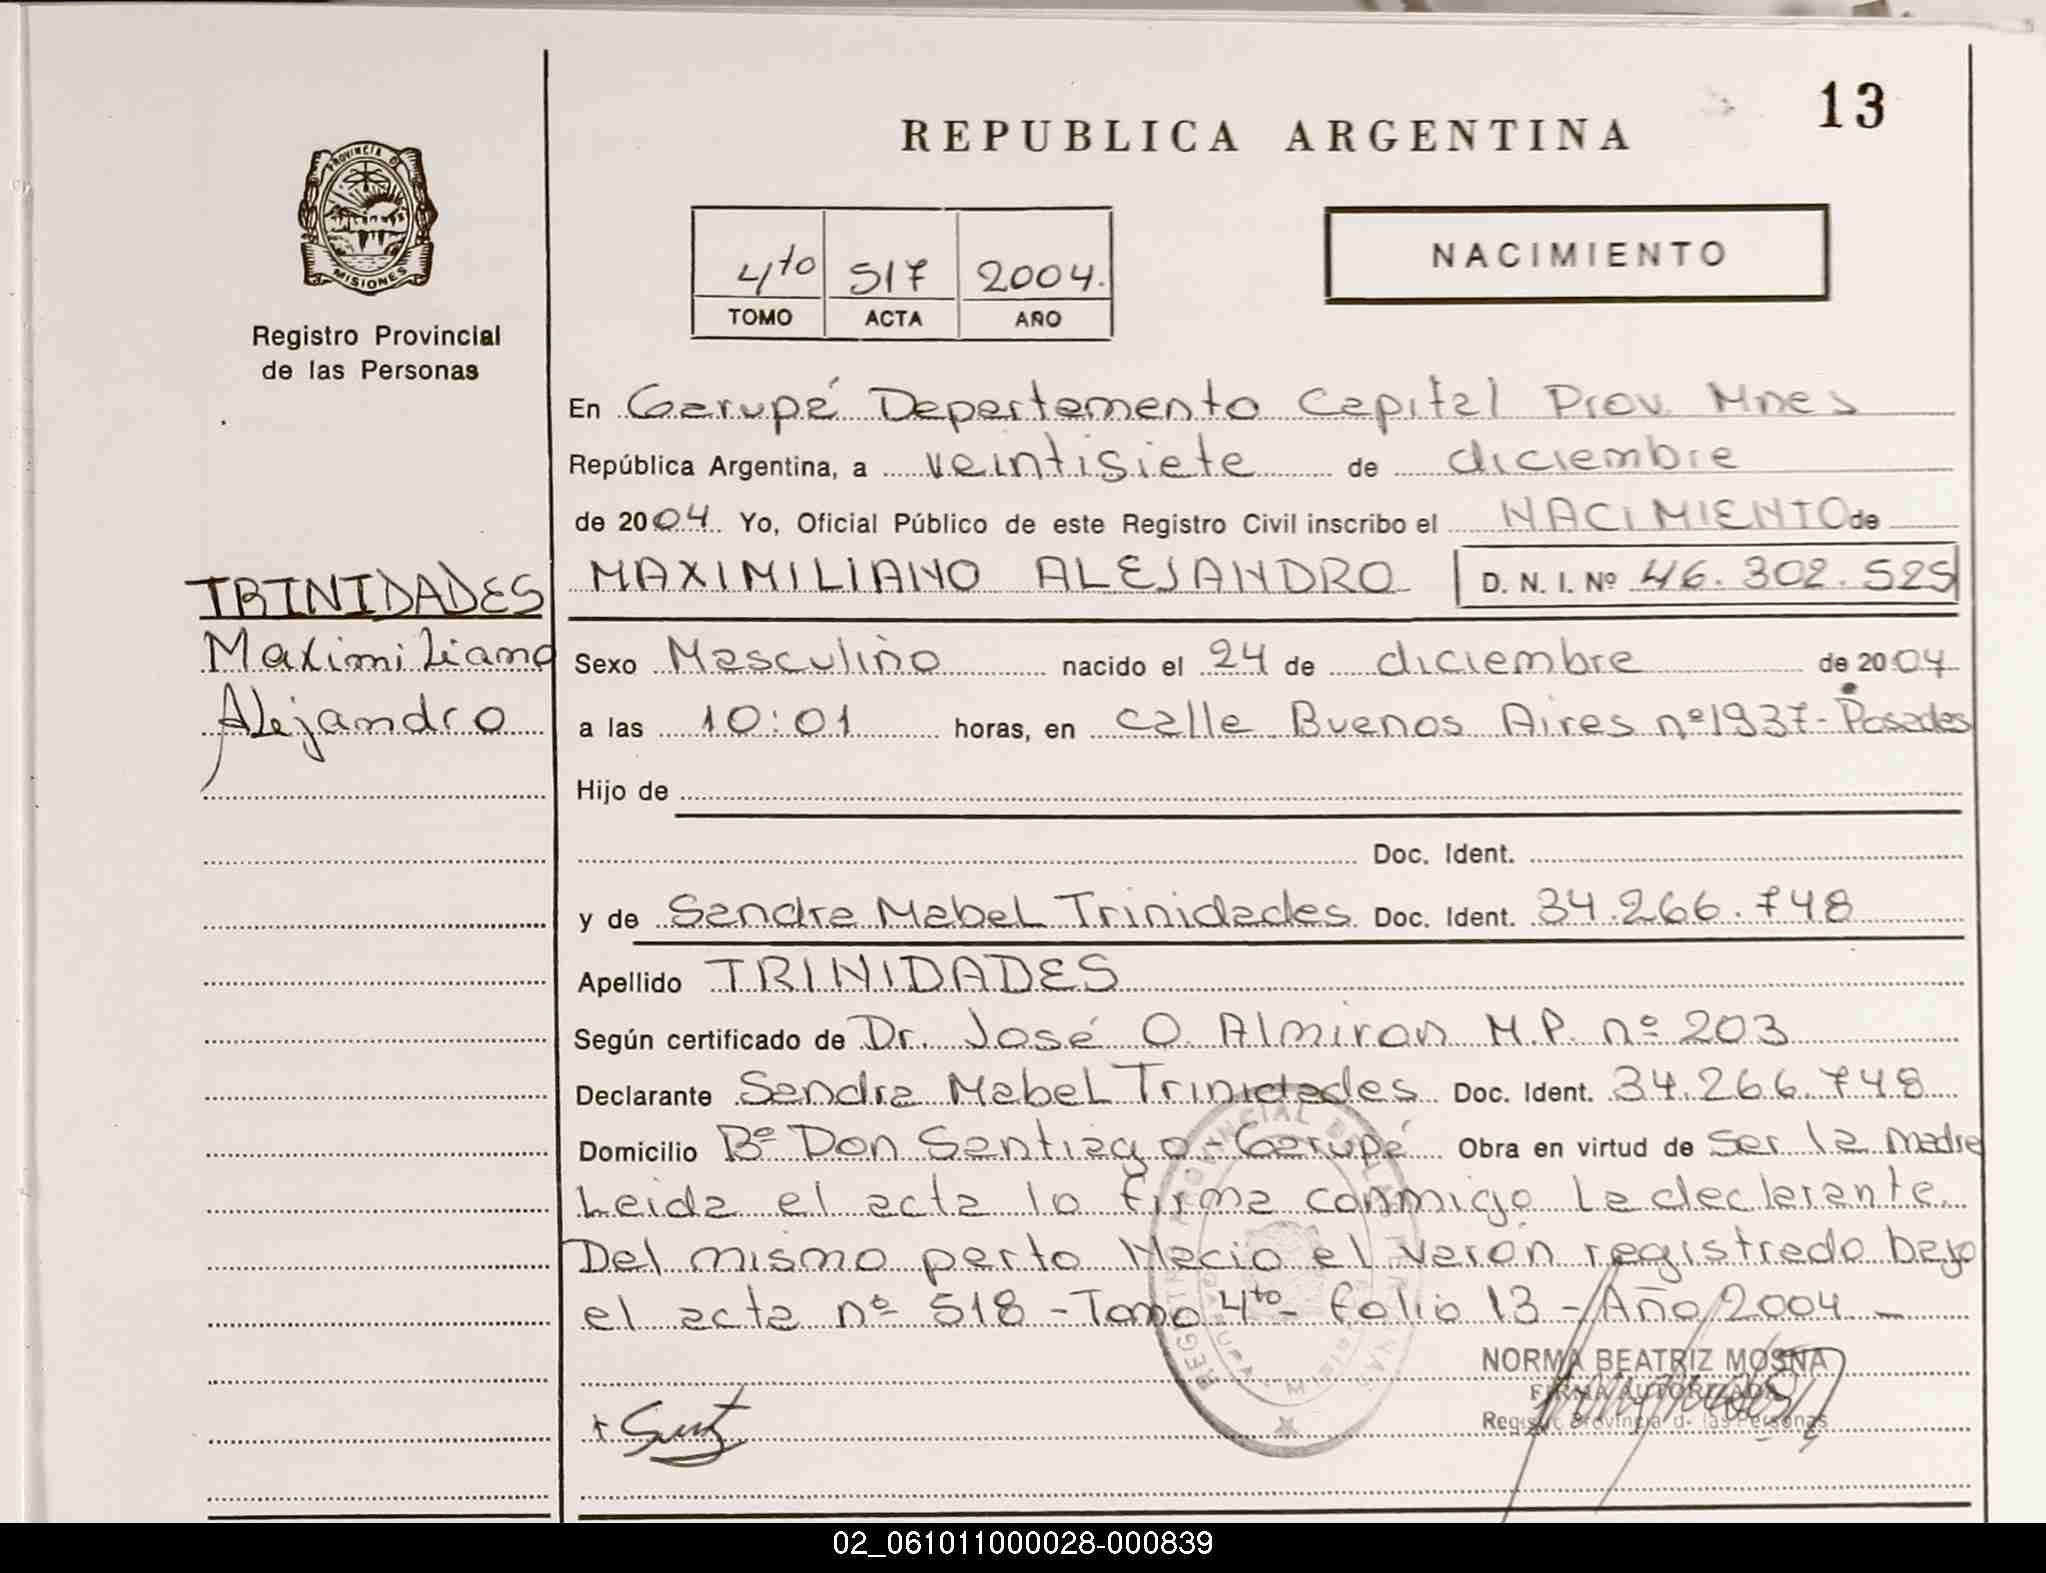 13
REPUBLICA ARGENTINA
PROVINCIA DE
MISIONES
Registro Provincial
de las Personas
4to 517 2004.
TOMO ACTA AÑO
NACIMIENTO
En Garupá Departamento Capital Prov. Mnes
República Argentina, a veintisiete de diciembre
de 2004. Yo, Oficial Público de este Registro Civil inscribo el NACIMIENTO de
MAXIMILIANO ALEJANDRO D. N. I. Nº 46.302.525
TRINIDADES
Maximiliano
Alejandro
Sexo Masculino nacido el 24 de diciembre de 2004
a las 10:01 horas, en calle Buenos Aires nº 1937 - Posadas
Hijo de
Doc. Ident.
y de Sandra Mabel Trinidades Doc. Ident. 34.266.748
Apellido TRINIDADES
Según certificado de Dr. José O. Almiron M.P. nº 203
Declarante Sandra Mabel Trinidades Doc. Ident. 34.266.748
Domicilio Bº Don Santiago - Garupá Obra en virtud de ser la madre
Leida el acta la firma conmigo la declarante.
Del mismo parto Nacio el varón registrado bajo
el acta nº 518 - Tomo 4to - folio 13 - Año 2004 -
NORMA BEATRIZ MOSNA
FIRMA AUTORIZADA
Registro Provincial de las Personas
02_061011000028-000839